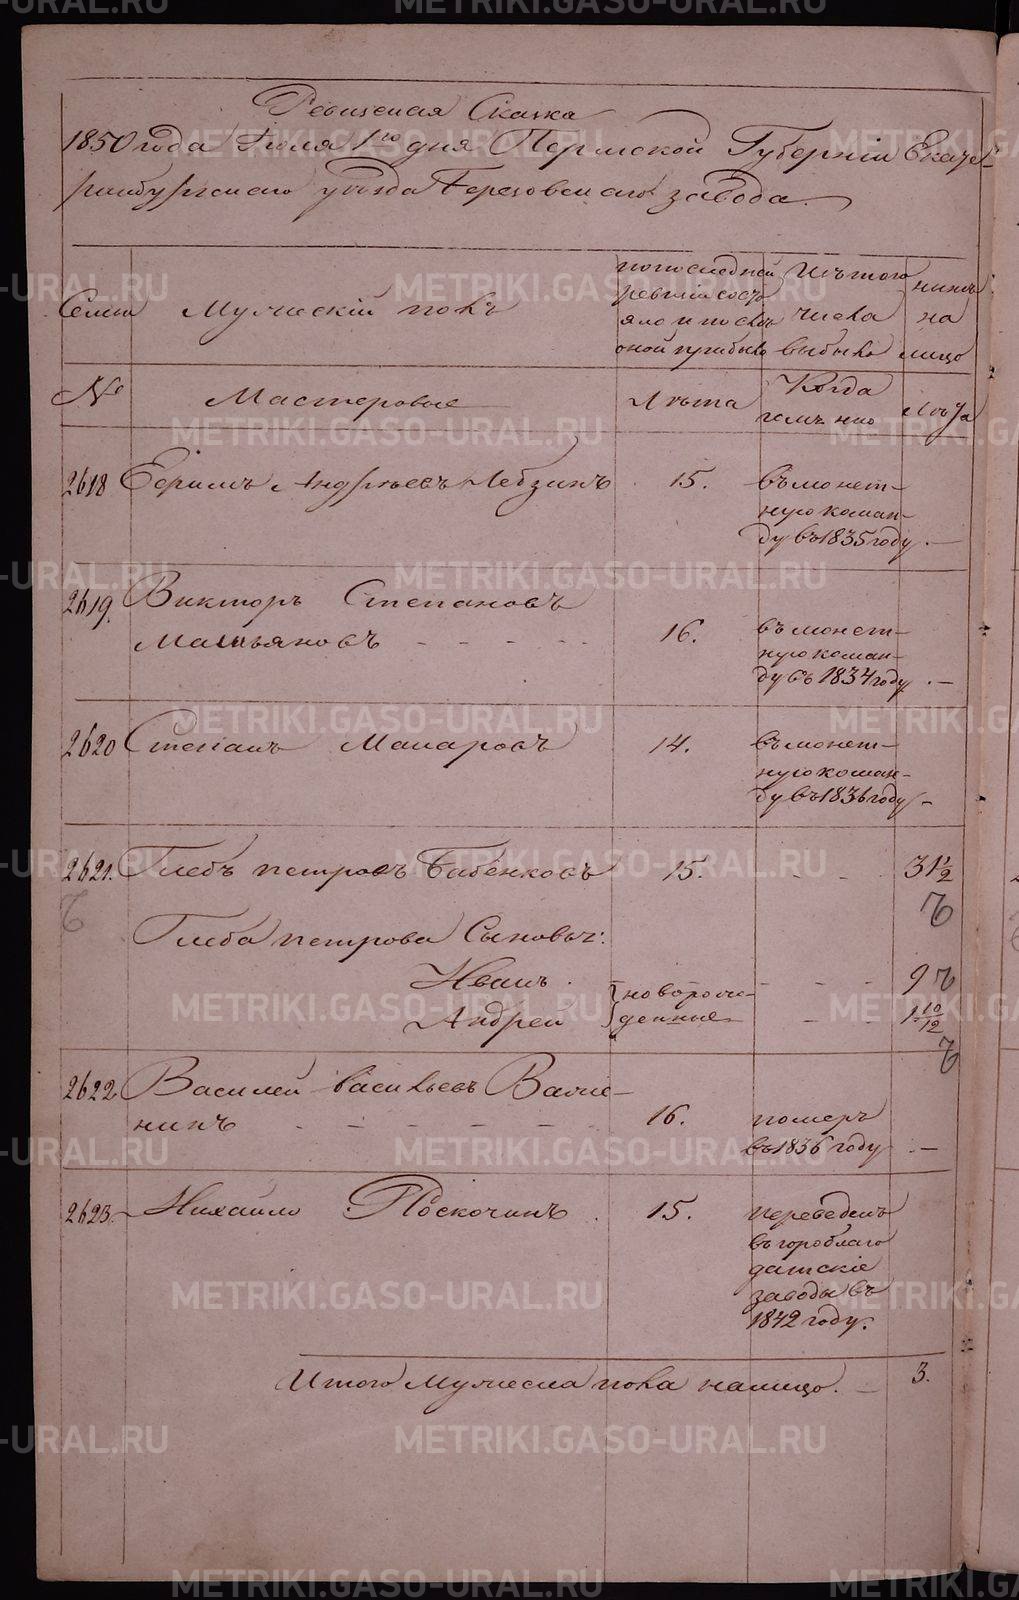 Ревизская Сказка
1850 года Июля 1го дня Пермской Губерніи Екате-
ринбургскаго уѣзда Березовскаго завода.
Семьи
Мужескій полъ
по последней
ревизіи состо
яло и послѣ
оной прибыло
Изъ того
числа
выбыло
нынѣ
на
лицо
№
Мастеровые
Лѣта
Когда
имянно
Лѣта
2618 Ефимъ Андреевъ Лебзинъ 15. въ монет-
ную коман-
ду въ 1835 году. —
2619. Викторъ Степановъ
16. въ монет-
ную коман-
ду въ 1834 году . —
2620 Степанъ Макаровъ 14. въ монет-
ную коман-
ду въ 1836 году —
2621. Глебъ петровъ Бабенковъ 15. - - 31 1/2
Глеба петрова Сыновья:
Иванъ . новорож- - - - 9
Андрей денные - - - 1 10/12
2622 Василей васильевъ
нинъ - - - - - - 16. померъ
въ 1836 году . —
2623. Михайло Поскочинъ . 15. переведенъ
въ гороблаго
датскіе
заводы въ
1842 году.
Итого мужеска пола налицо. — 3.
METRIKI.GASO-URAL.RU